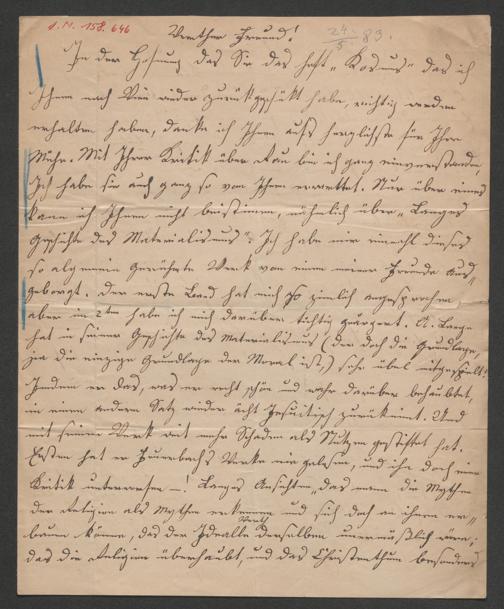 I.N. 158.646
24. 5. 83.
Werther Freund!
In der Hofnung das Sie das Heft „Kosmos" das ich
Ihnen nach Wien wider zurükgeschikt habe, richtig werden
erhalten haben, danke ich Ihnen aufs herzlichste für Ihre
Mühe. Mit Ihrer Kritik über bin ich ganz einverstanden,
Ich habe sie auch ganz so von Ihnen erwartet. Nur über eines
kann ich Ihnen nicht beistimen, nähmlich über „Langes
Geschichte des Materialismus". Ich habe mir einmahl dieses
so algemein gerühmte Werk von einem meiner Freunde aus-
geborgt. Der erste Band hat mich so zimlich angesprochen,
aber im 2ten habe ich mich darüber tüchtig geärgert. A. Lange
hat in seiner Geschichte des Materialismus (der doch die Grundlage,
ja die einzige Grundlage der Moral ist,) sehr übel mitgespielt!
Indem er das, was er recht schön und wahr darüber behaubtet,
in einem andern Satz wieder ächt Jesuitisch zurüknimt. Und
mit seinem Werk weit mehr Schaden als Nutzen gestiftet hat.
Erstens hat er Feuerbach's Werke nie gelesen, und ihn doch einer
Kritik unterworfen –! Langes Ansichten „das man die Mythen
der Religion als Mythen erkennen und sich doch an ihnen er-
bauen könne, das der Werth Idealle derselben unermäßlich wäre;
das die Religion überhaubt, und das Christenthum besonders